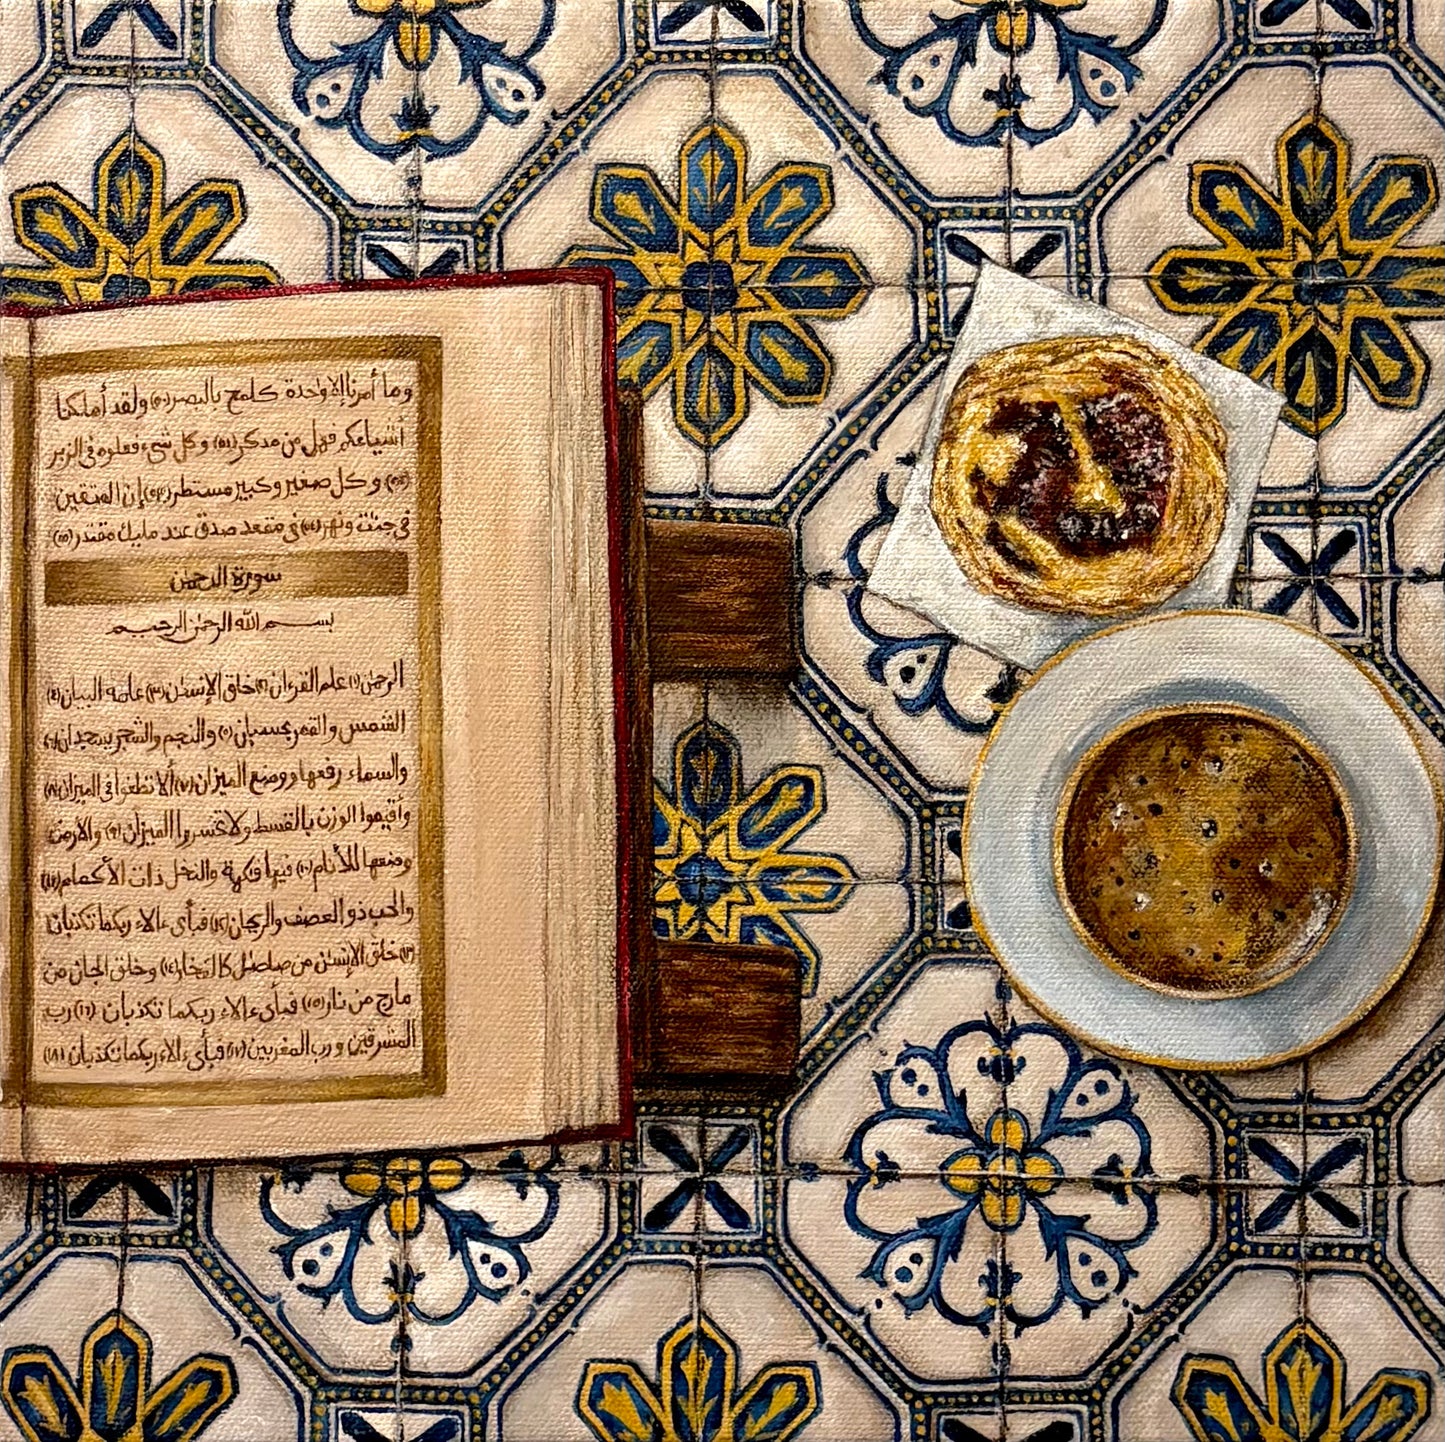 وما أمرنا إلا وٰحدة كلمح بالبصر (٥٠) ولقد أهلكنا
أشياعكم فهل من مدكر (٥١) وكل شىء فعلوه فى الزبر
(٥٢) وكل صغير وكبير مستطر (٥٣) إن المتقين
فى جنٰت ونهر (٥٤) فى مقعد صدق عند مليك مقتدر (٥٥)
سورة الرحمٰن
بسم الله الرحمٰن الرحيم
الرحمٰن (١) علم القرءان (٢) خلق الإنسٰن (٣) علمه البيان (٤)
الشمس والقمر بحسبان (٥) والنجم والشجر يسجدان (٦)
والسماء رفعها ووضع الميزان (٧) ألا تطغوا فى الميزان (٨)
وأقيموا الوزن بالقسط ولا تخسروا الميزان (٩) والأرض
وضعها للأنام (١٠) فيها فٰكهة والنخل ذات الأكمام (١١)
والحب ذو العصف والريحان (١٢) فبأى ءالاء ربكما تكذبان
(١٣) خلق الإنسٰن من صلصٰل كالفخار (١٤) وخلق الجان من
مارج من نار (١٥) فبأى ءالاء ربكما تكذبان (١٦) رب
المشرقين ورب المغربين (١٧) فبأى ءالاء ربكما تكذبان (١٨)